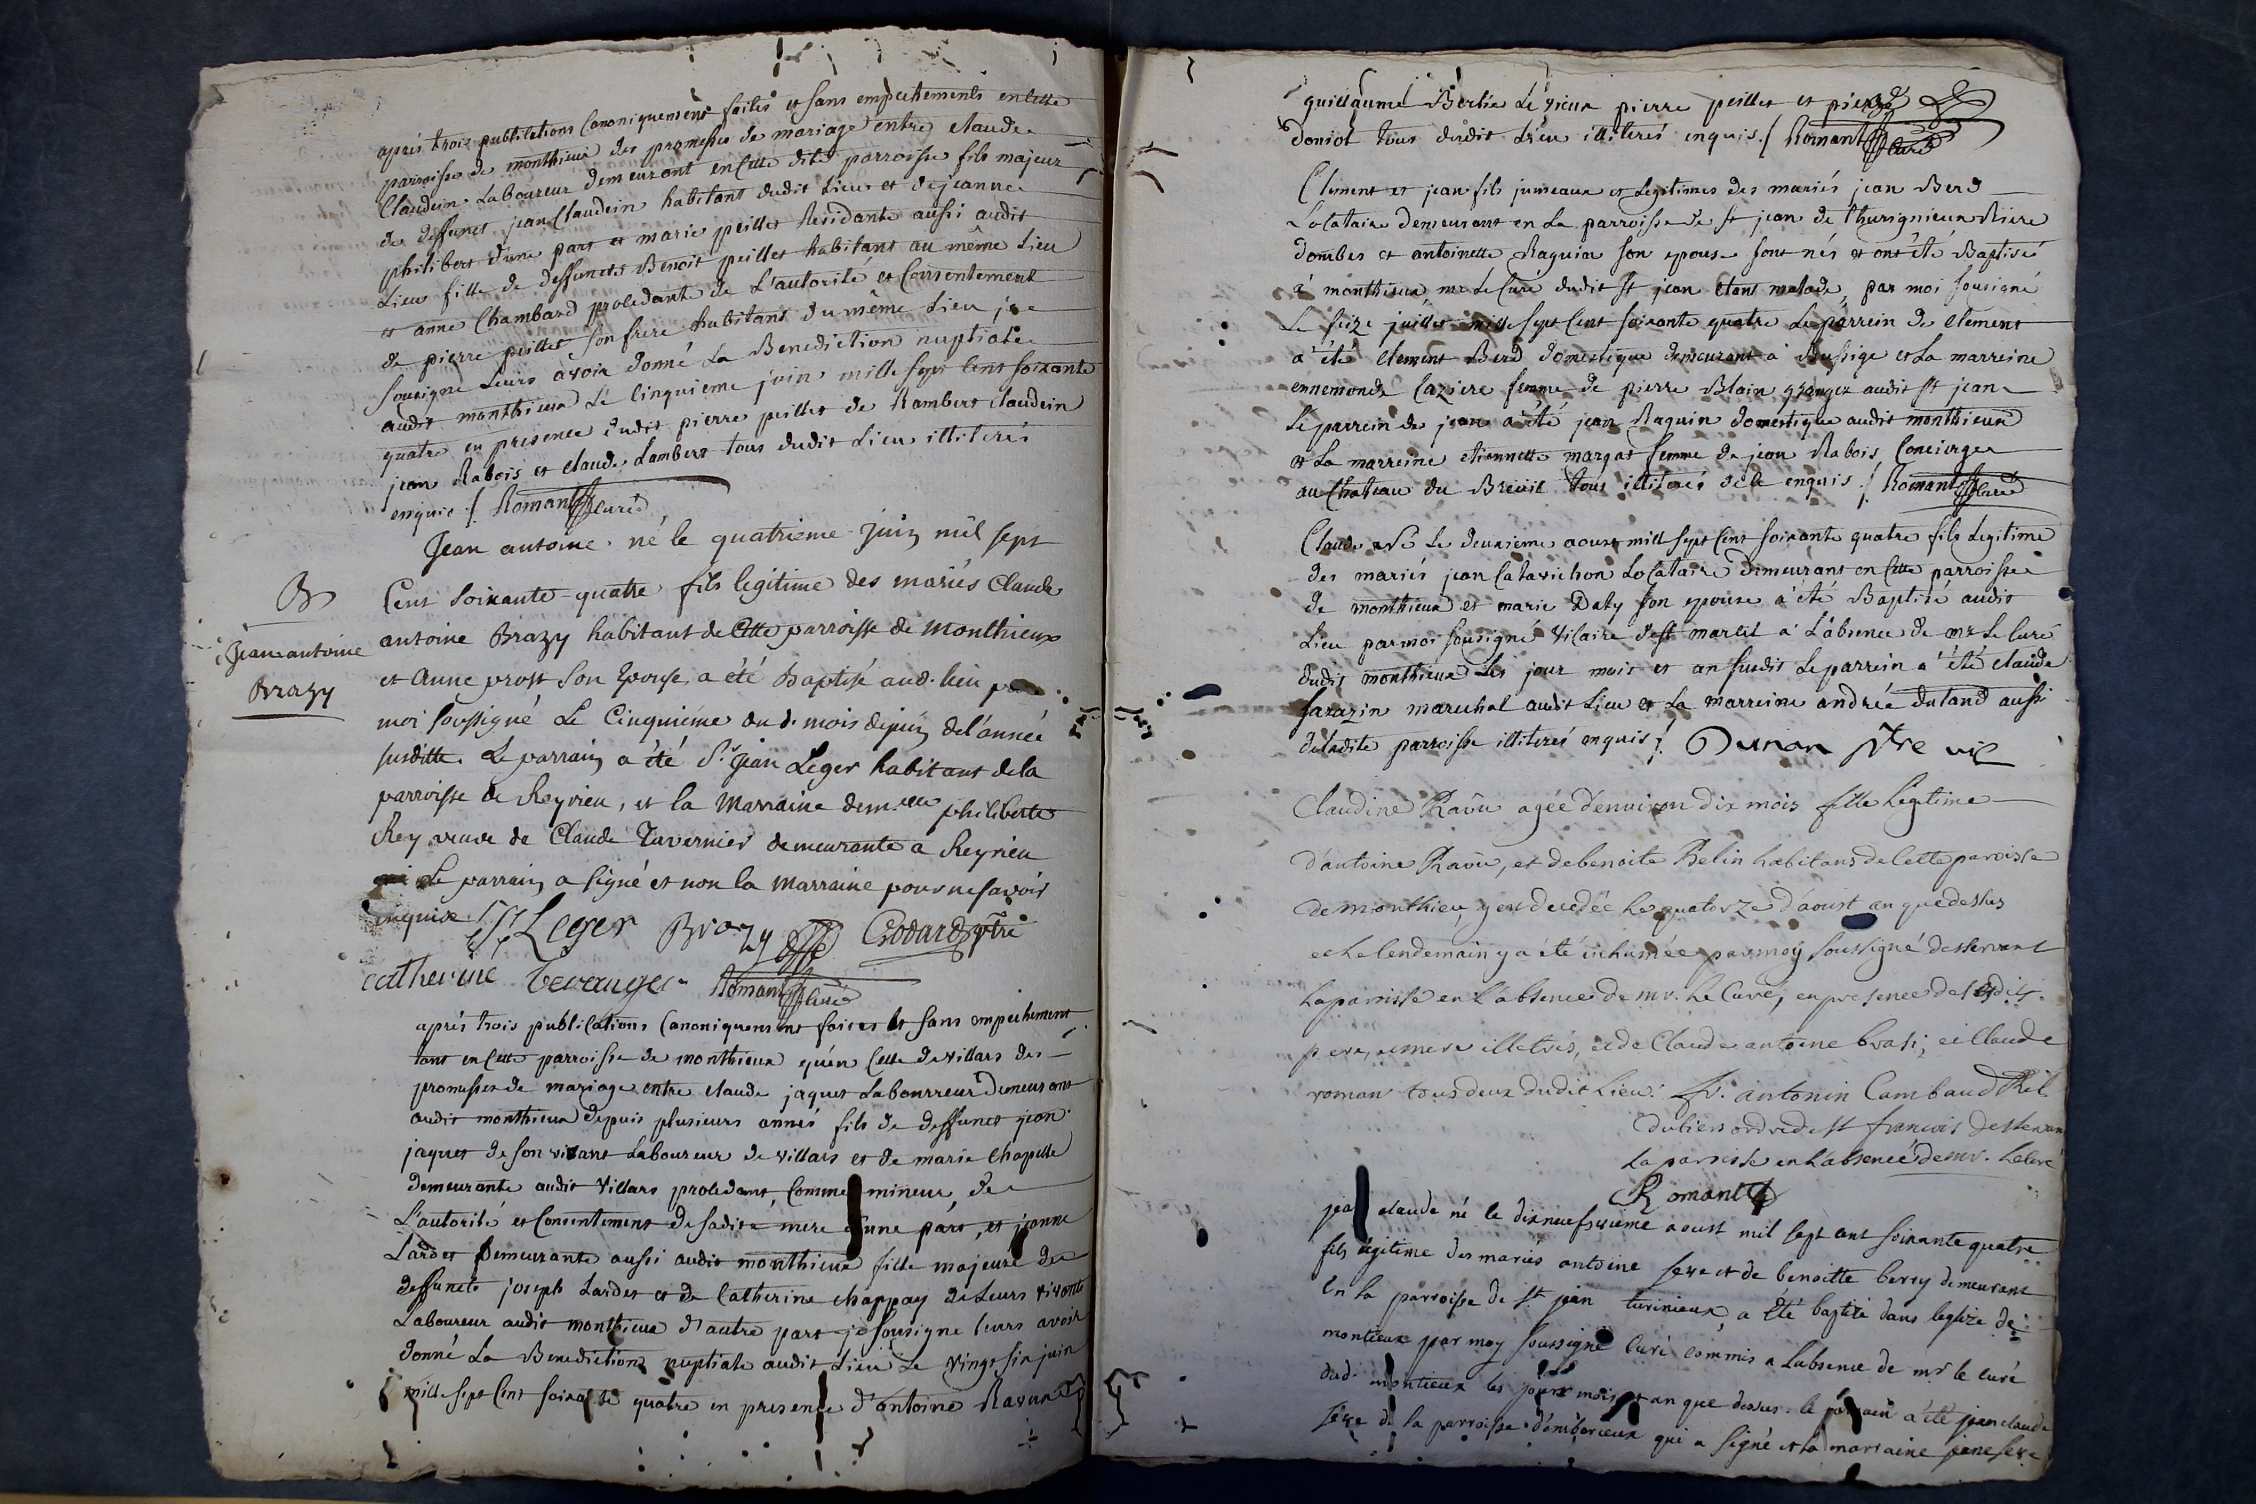 après trois publications Canoniquement faites et sans empechements en cette
parroisse de monthieux des promesses de mariage entre claude
Claudein Laboureur demeurant en Cette dite parroisse fils majeur
de deffunct jean Claudein habitant dudit Lieu et de jeanne
philibert d'une part et marie peillet Residante aussi audit
Lieu fille de deffuncts Benoit peillet habitant au même Lieu
et anne Chambard procedante de L'autorité et Consentement
de pierre peillet son frere habitant du même Lieu je
sousigne Leurs avoir donné La Benediction nuptiale
audit monthieux Le Cinquieme juin mille sept Cent soixante
quatre en presence dudit pierre peillet de Rambert Claudein
jean Rabois et claude Lambert tous dudit Lieu illiterés
enquis / Romant Curé
Jean antoine né le quatrieme juin mil sept
Cent soixante quatre fils legitime des mariés Claude
antoine Brazy habitant de Cette parroisse de Monthieux
et Anne prost son Epouse, a été Baptisé aud. lieu par
moi soussigné Le Cinquième du d. mois de juin de l'année
susditte. Le parrain a été Sr. Jean Leger habitant de la
parroisse de Reyrieu, et la Marraine demelle philiberte
Rey veuve de Claude Tavernier demeurante a Reyrieu
Le parrain a signé et non la Marraine pour ne savoir
enquise.
B
Jean antoine
Brazy
Leger Brazy Crodard ptre
catherine Romant Curé
après trois publications Canoniquement faites et sans empechement
tant en Cette parroisse de monthieux qu'en Celle de villars des
promesses de mariage entre claude jaquet Labourreur Demeurant
audit monthieux depuis plusieurs annés fils de deffunct jean
jaquet de son vivant Laboureur de villars et de marie Chapelle
demeurante audit villars procedant, Comme mineur, de
L'autorité et Consentement de sadite mere d'une part, et jeanne
Lardet Demeurante aussi audit monthieux fille majeure de
deffuncts joseph Lardet et de Catherine chappay de Leurs vivants
Laboureur audit monthieux d'autre part je sousigne leurs avoir
donné La Benediction nuptiale audit Lieu Le vingt six juin
mille sept Cent soixante quatre en presence d'antoine Ravu
guillaume Bertie Le vieux pierre peillet et pierre
doniot tous dudit Lieu illiterés enquis / Romant Curé
Clement et jean fils jumeaux et Legitimes des mariés jean Berd
Locataire demeurant en La parroisse de St jean de thurignieux Riere
dombes et antoinette Raquin son epouse sont nés et ont été Baptisé
à monthieux, mr Le Curé dudit St jean etant malade, par moi sousigné
Le seize juillet mille sept Cent soixante quatre Le parrein de Clement
a été Clement Berd domestique demeurant à Bussige et La marreine
ennemonde Laziere femme de pierre Blain granger audit St jean
Le parrein de jean a été jean Raquin domestique audit monthieux
et La marreine etiennette margat femme de jean Rabois Concierge
au Chateau du Breüil tous illiterés de ce enquis / Romant Curé
Claude né Le deuxieme aoust mill sept Cent soixante quatre fils Legitime
des mariés jean Catavichon Locataire demeurant en Cette parroisse
de monthieux et marie Daty son epouse a été Baptisé audit
Lieu par moi sousigné vicaire de St marcel à L'absence de mr Le Curé
dudit monthieux Les jour mois et an susdit Le parrein a été claude
sarazin marechal audit Lieu et La marreine andrée dutand aussi
de Ladite parroisse illiterés enquis / Dunan ptre vic
Claudine Ravu agée d'environ dix mois fille légitime
d'antoine Ravu, et de benoite Belin habitans de Cette paroisse
de monthieu, y est decedée le quatorze d'aoust an que dessus
et le lendemain y a été inhumée par moy soussigné desservant
la paroisse en l'absence de mr. Le Curé, en presence desdits
pere, et mere illetrés, et de Claude antoine brasi, et Claude
roman tous deux dudit Lieu. f. antonin Cambaud Rel.
du tiers ordre de St françois desservant
la paroisse en l'absence de mr. le curé
Romant
jean claude né le dixneufvieme aoust mil sept cent soixante quatre
fils legitime des mariés antoine seve et de benoitte berry demeurant
en la parroisse de st jean turinieux, a été baptisé dans leglize de
montieux par moy soussigné Curé commis a l'absence de mr le curé
dud. montieux les jour mois et an que dessus. le parrain a été jean claude
seve de la parroisse d'amberieux qui a signé et la marraine jane seve